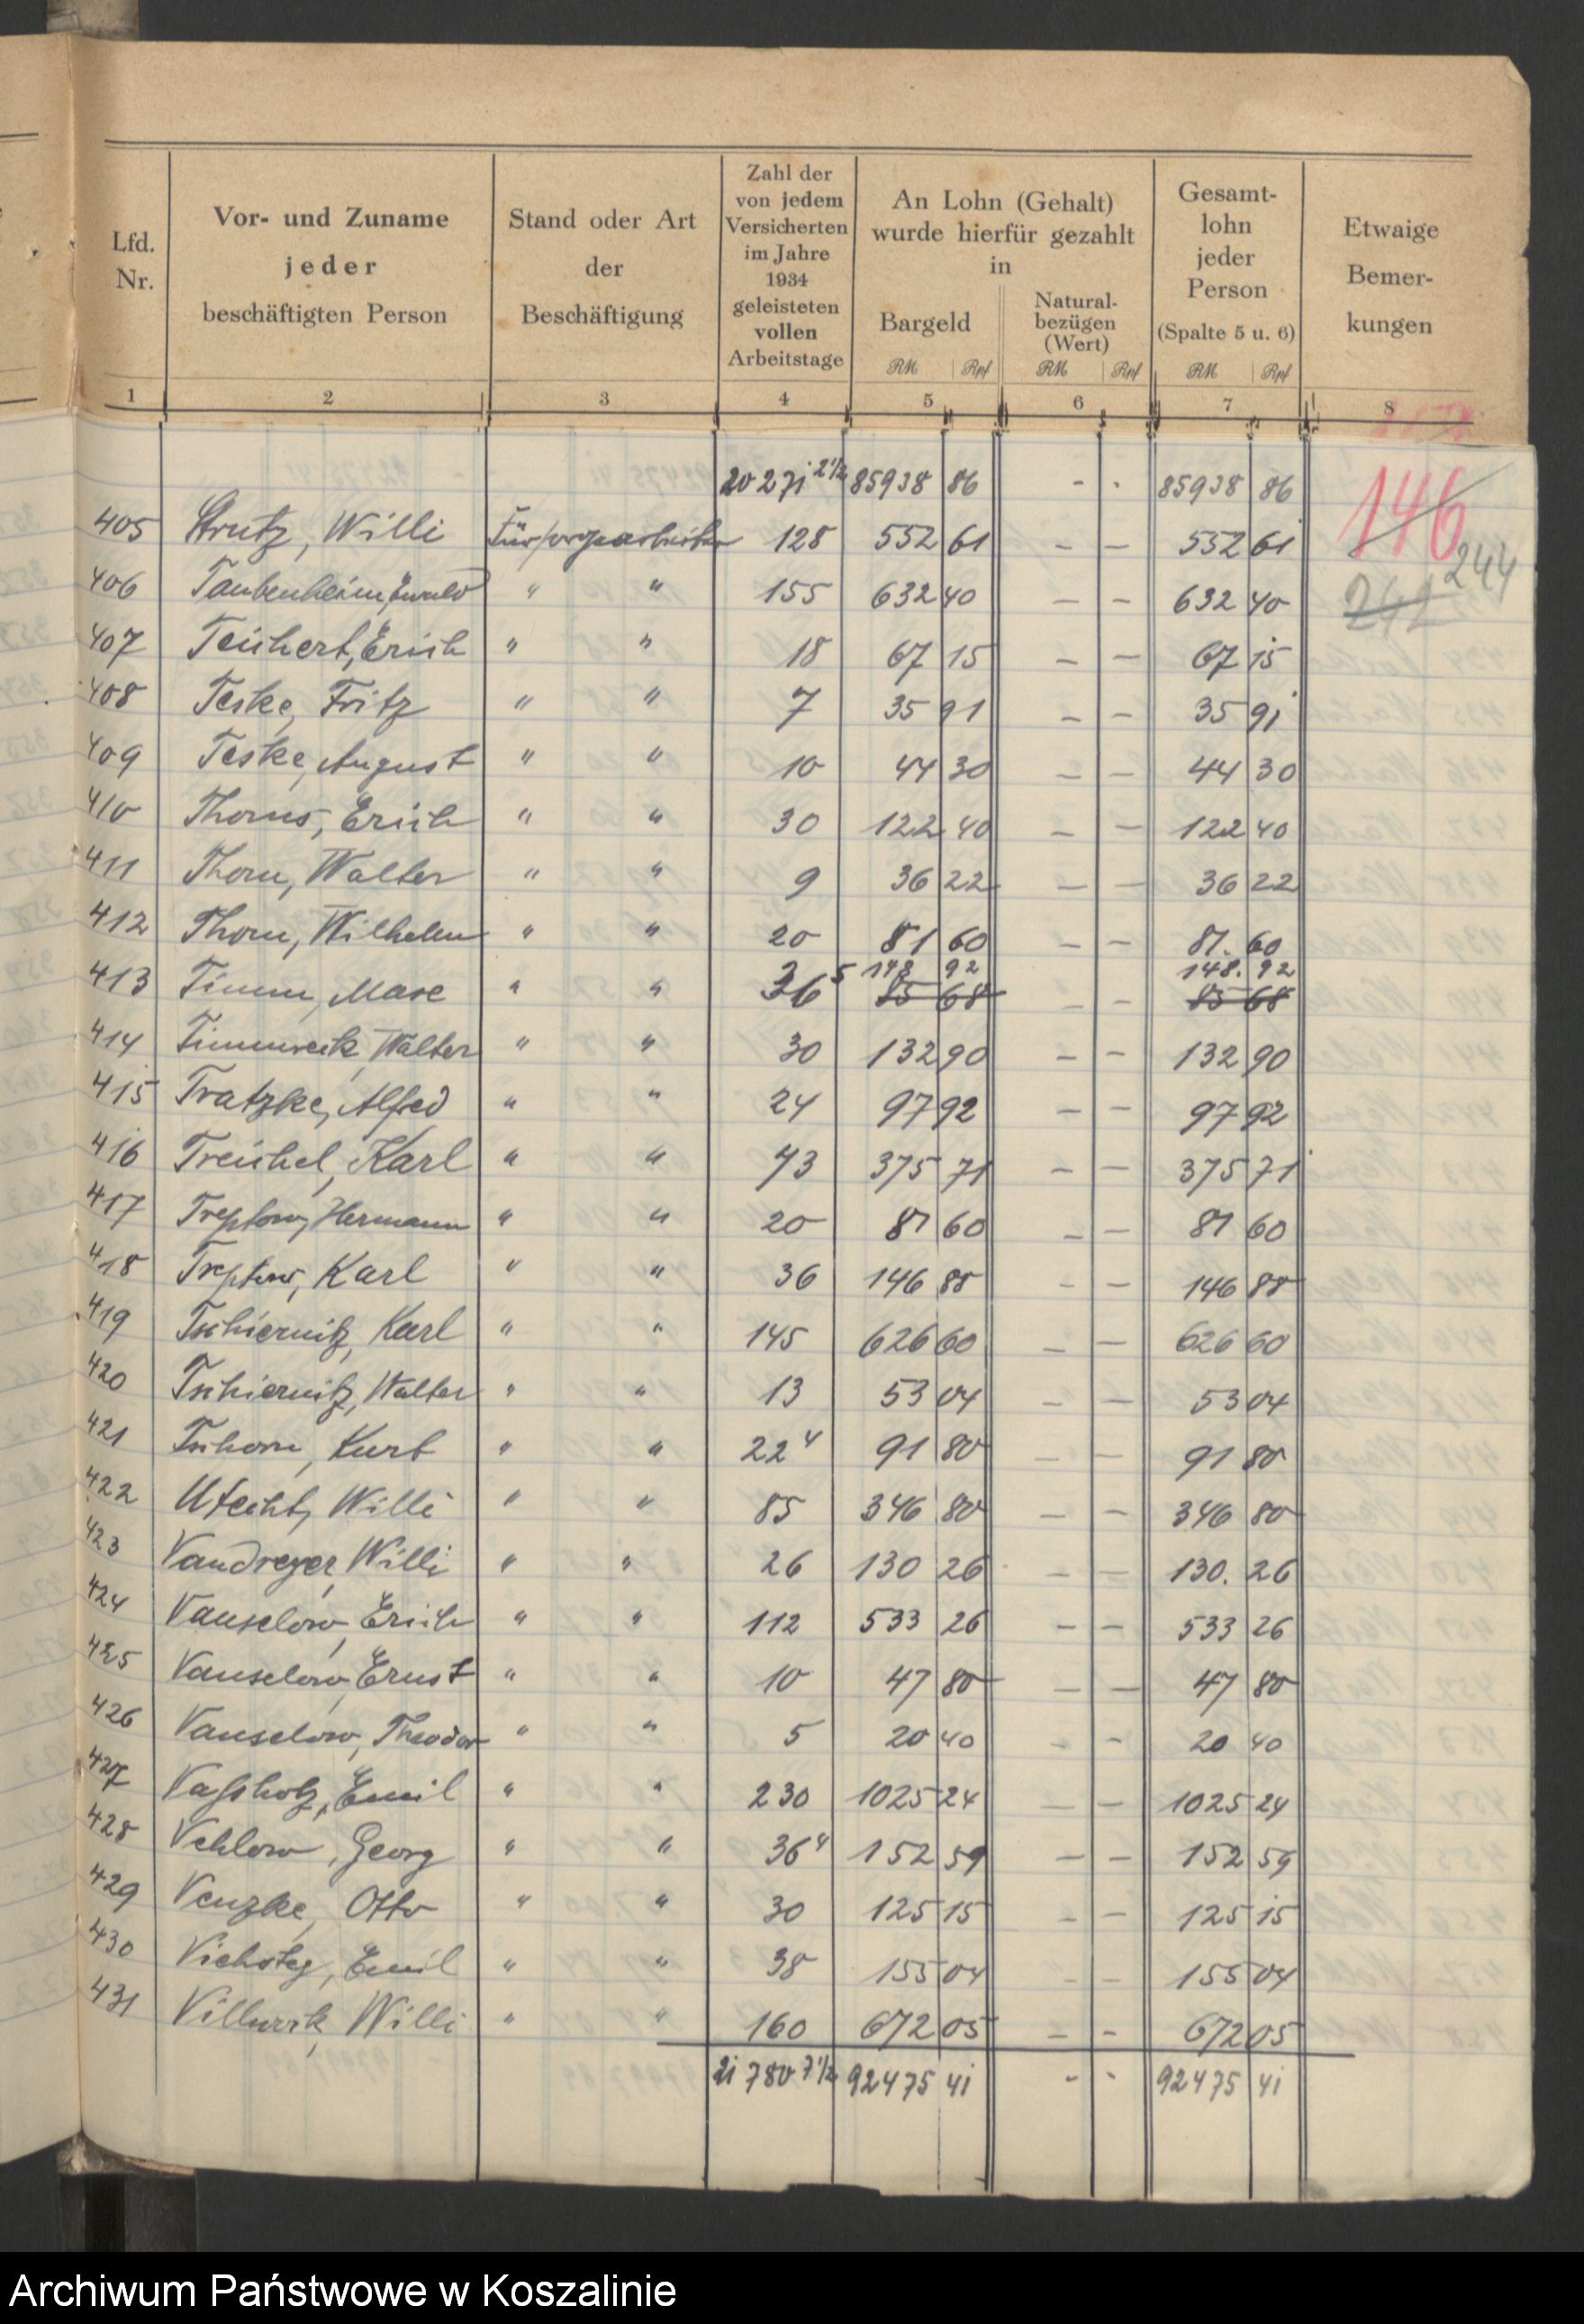 Lfd. Nr.
Vor- und Zuname jeder beschäftigten Person
Stand oder Art der Beschäftigung
Zahl der von jedem Versicherten im Jahre 1934 geleisteten vollen Arbeitstage
An Lohn (Gehalt) wurde hierfür gezahlt in
Bargeld
Natural-bezügen (Wert)
Gesamt-lohn jeder Person (Spalte 5 u. 6)
Etwaige Bemer-kungen
RM Rpf RM Rpf RM Rpf
1 2 3 4 5 6 7 8
20271 2½ 85938 86 - - 85938 86
146
405 Strutz, Willi Fürsorgearbeiter 128 552 61 — — 552 61
244
406 Taubenheim, Ewald " " 155 632 40 — — 632 40
242
407 Teichert, Erich " " 18 67 15 — — 67 15
408 Teske, Fritz " " 7 35 91 — — 35 91
409 Teske, August " " 10 44 30 — — 44 30
410 Thoms, Erich " " 30 122 40 — — 122 40
411 Thom, Walter " " 9 36 22 — — 36 22
412 Thom, Wilhelm " " 20 81 60 — — 81. 60
148 92 148. 92
413 Timm, Max " " 36 5 85 68 — — 85 68
414 Timmreck, Walter " " 30 132 90 — — 132 90
415 Tratzke, Alfred " " 24 97 92 — — 97 92
416 Treichel, Karl " " 73 375 71 — — 375 71
417 Treptow, Hermann " " 20 81 60 — — 81 60
418 Treptow, Karl " " 36 146 88 — — 146 88
419 Tschiernitz, Karl " " 145 626 60 — — 626 60
420 Tschiernitz, Walter " " 13 53 04 — — 53 04
421 Tschorn, Kurt " " 22 4 91 80 — — 91 80
422 Utecht, Willi " " 85 346 80 — — 346 80
423 Vandreyer, Willi " " 26 130 26 — — 130. 26
424 Vanselow, Erich " " 112 533 26 — — 533 26
425 Vanselow, Ernst " " 10 47 80 — — 47 80
426 Vanselow, Theodor " " 5 20 40 — — 20 40
427 Vaßholz, Emil " " 230 1025 24 — — 1025 24
428 Vehlow, Georg " " 36 4 152 59 — — 152 59
429 Venzke, Otto " " 30 125 15 — — 125 15
430 Viehsteg, Emil " " 38 155 04 — — 155 04
431 Villwock, Willi " " 160 672 05 — — 672 05
21780 7½ 92475 41 - - 92475 41
Archiwum Państwowe w Koszalinie